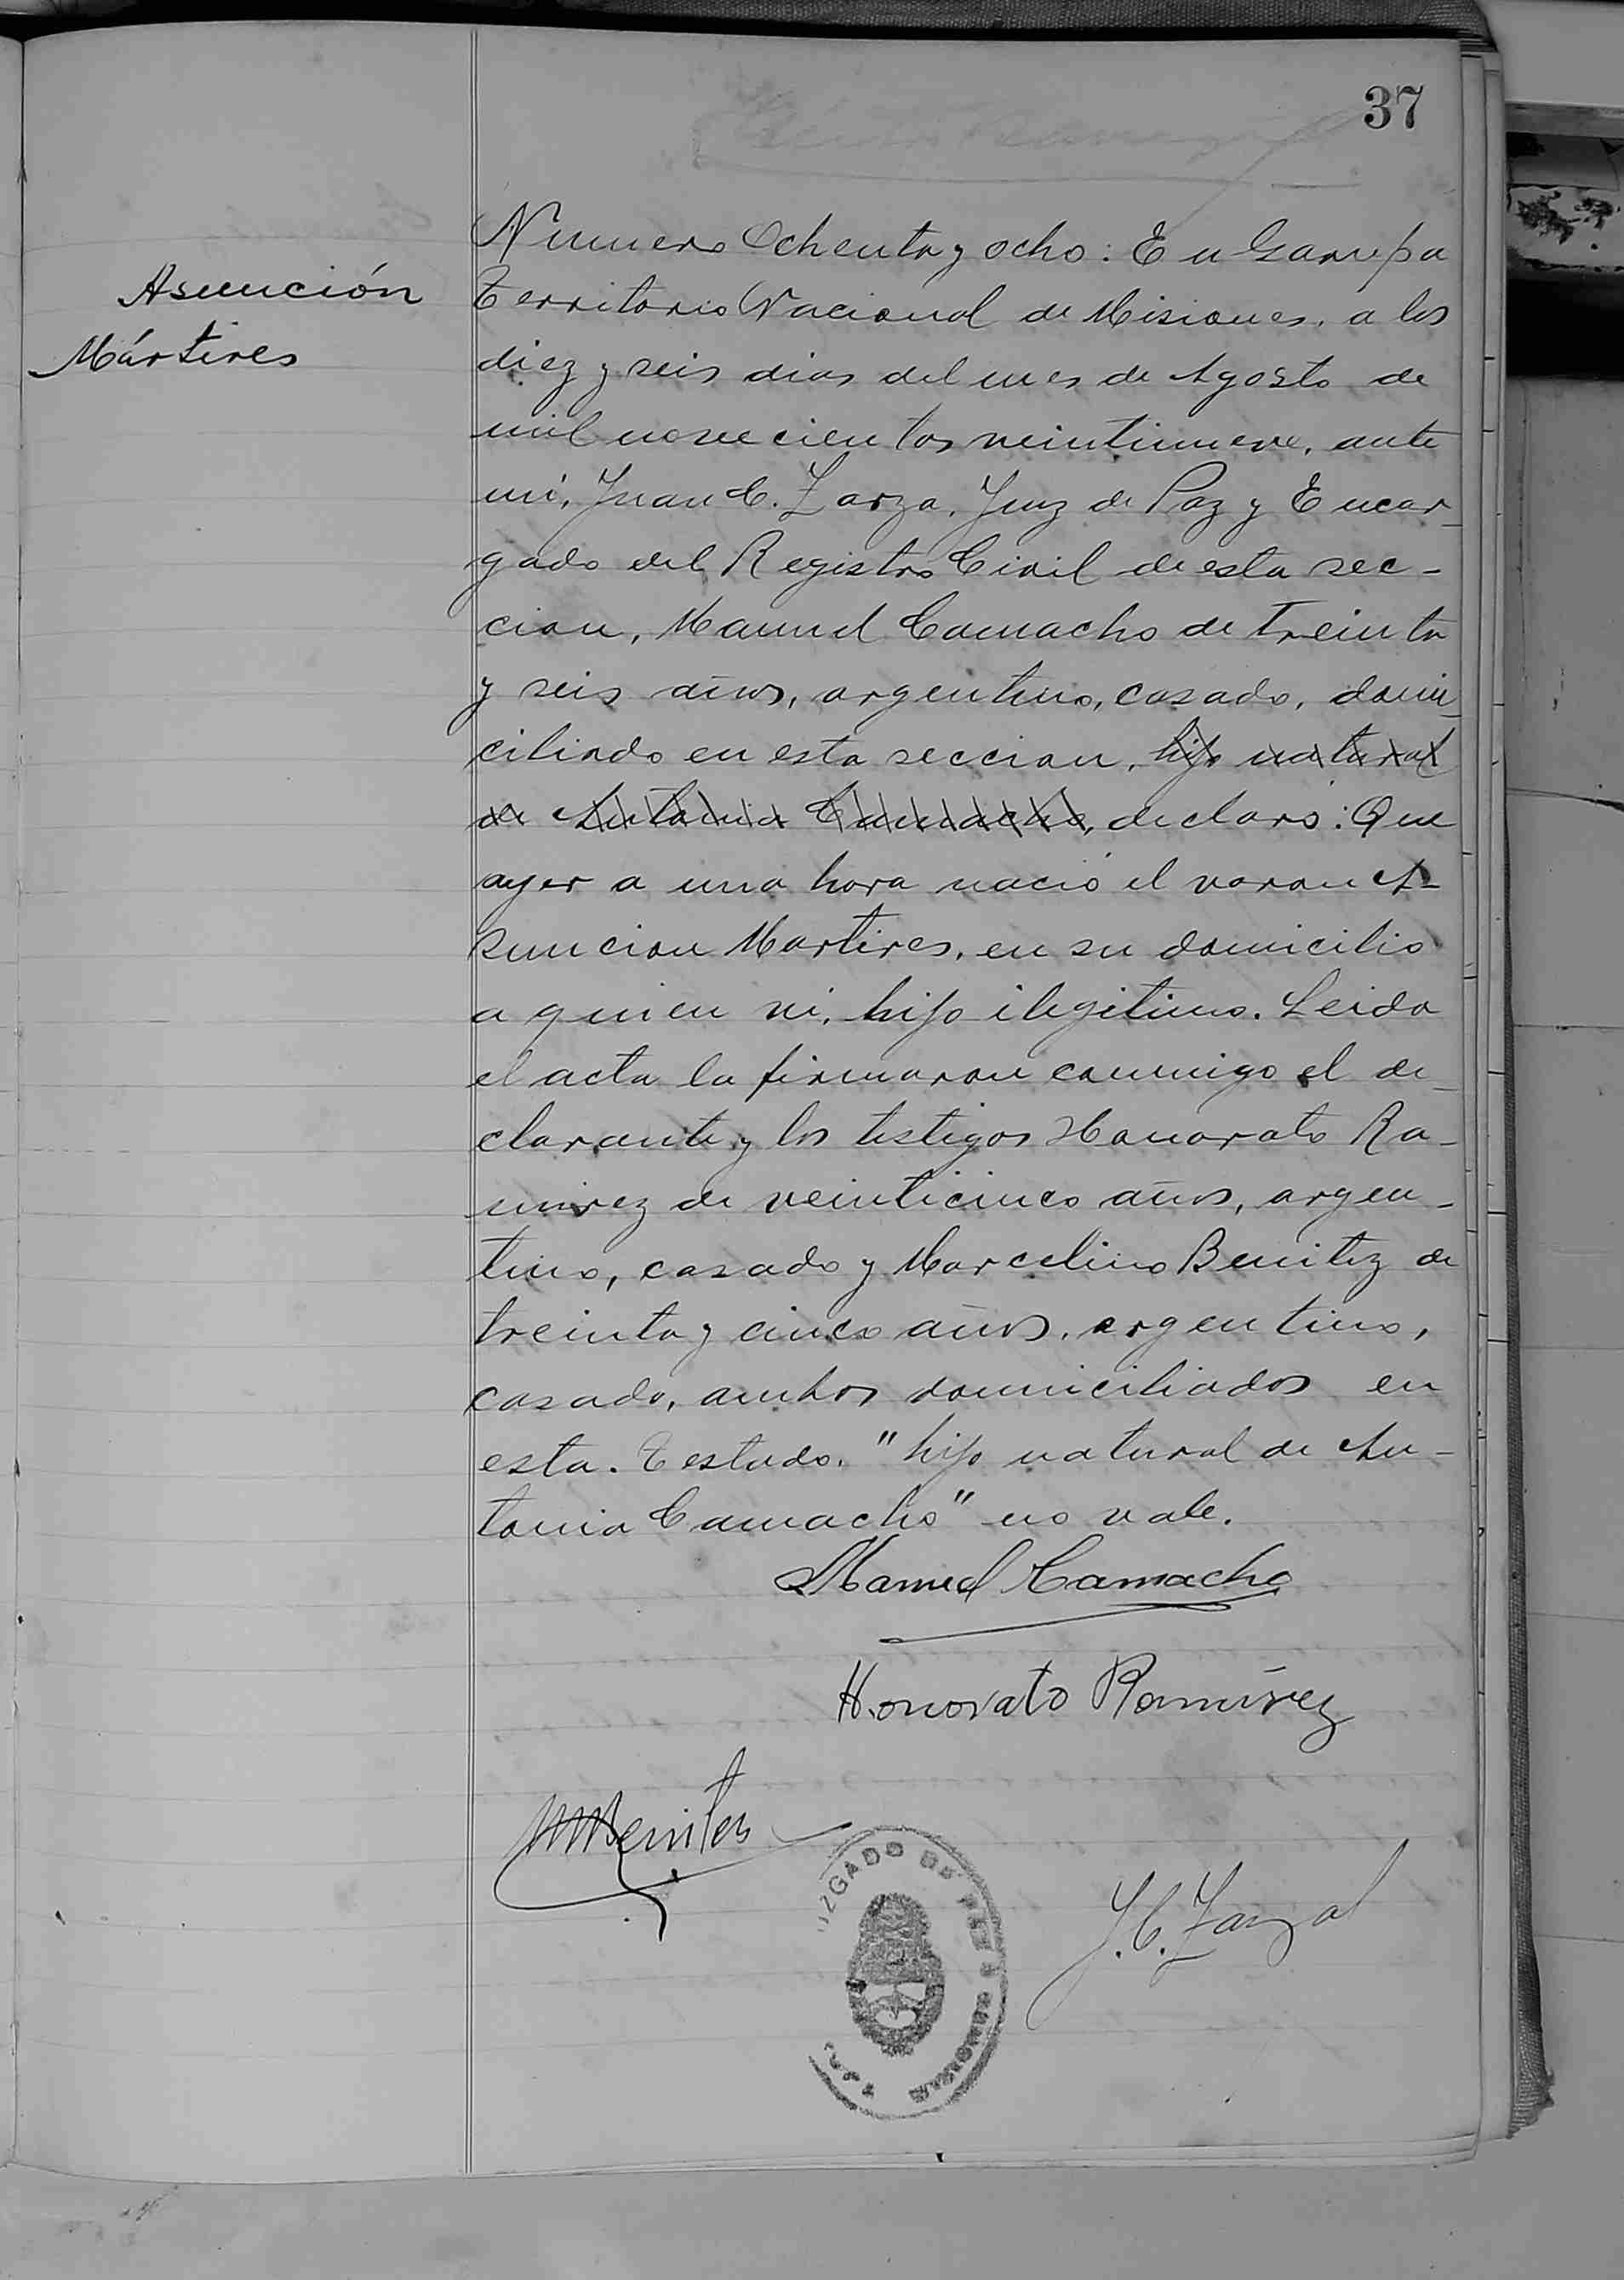 37
Asunción
Mártires
Numero Ochenta y ocho: En Garupa
Territorio Nacional de Misiones, a los
diez y seis dias del mes de Agosto de
mil novecientos veintinueve, ante
mi, Juan C. Zarza, Juez de Paz y Encar-
gado del Registro Civil de esta sec-
cion, Manuel Camacho de treinta
y seis años, argentino, casado, domi-
ciliado en esta seccion, hijo natural
de Antonia Camacho, declaró: Que
ayer a una hora nació el varon A-
suncion Martires, en su domicilio
a quien vi, hijo ilegitimo. Leida
el acta la firmaron conmigo el de-
clarante y los testigos Honorato Ra-
mirez de veinticinco años, argen-
tino, casado y Marcelino Benitez de
treinta y cinco años, argentino,
casado, ambos domiciliados en
esta. Testado. "hijo natural de An-
tonia Camacho" no vale.
Manuel Camacho
Honorato Ramírez
MBenites
J.C. Zarza
UZGADO DE PAZ